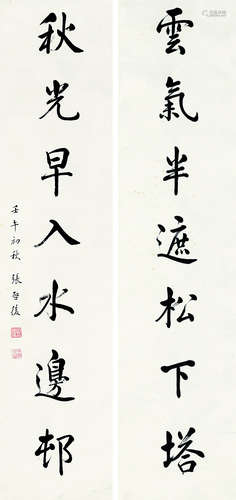 雲氣半遮松下塔
秋光早入水邊邨
壬午初秋 張啓後